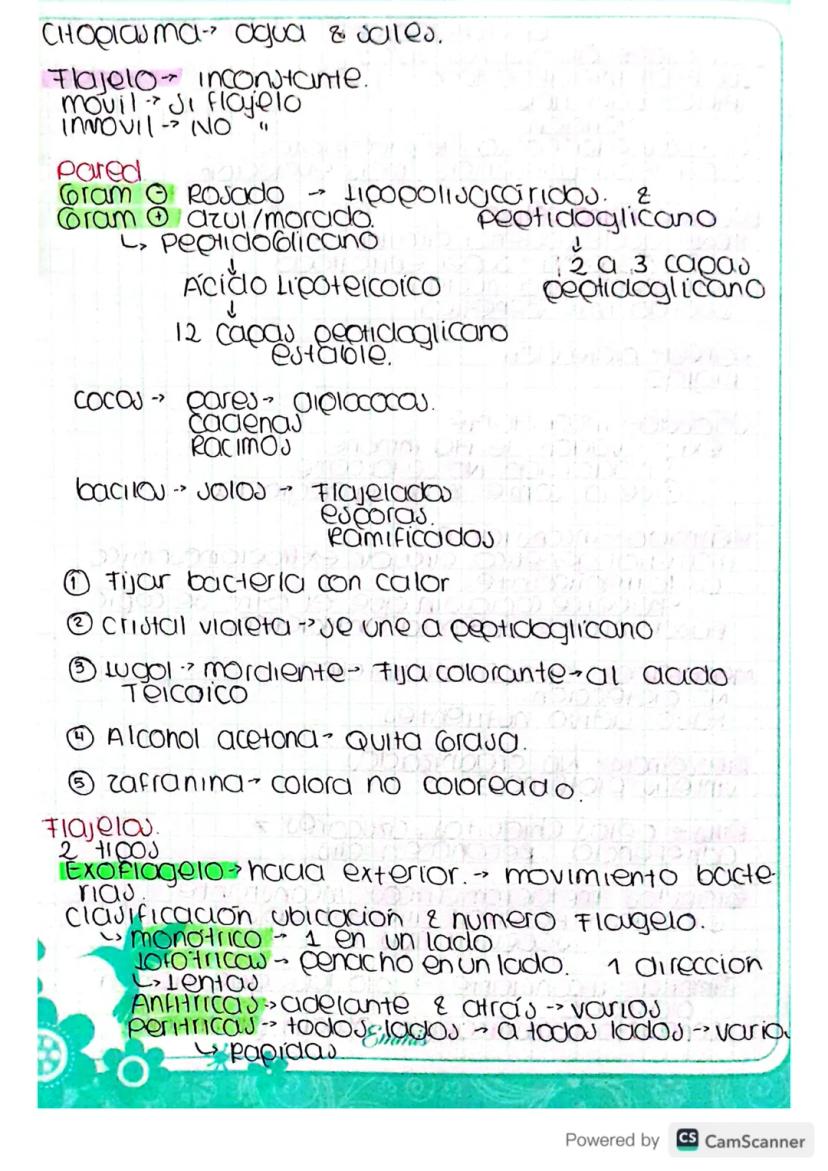 Citoplasma → agua & sales.
Flajelo → inconstante.
movil → si flajelo
inmovil → NO "
Pared
Gram ⊖ Rosado → Lipopolisacáridos. &
Gram ⊕ azul/morado. peptidoglicano
↳ Peptidoglicano ↓
↓ 2 a 3 capas
Ácido Lipoteicoico peptidoglicano
↓
12 capas peptidoglicano
estable.
cocos → pares → diplococos.
cadenas
Racimos
bacilos → solos → Flajelados
esporas.
Ramificados
① Fijar bacteria con calor
② Cristal violeta → se une a peptidoglicano
③ Lugol → mordiente → Fija colorante → al acido
Teicoico
④ Alcohol acetona → Quita Grasa.
⑤ zafranina → colora no coloreado.
Flajelos.
2 tipos
Exoflagelo → hacia exterior. → movimiento bacte-
rias.
Clasificación ubicacion & numero Flagelo.
↳ monótrico → 1 en un lado
Lofotricas → penacho en un lado. 1 direccion
↳ Lentas
Anfitricas → adelante & atrás → varios
peritricas → todos lados → a todos lados → varios
↳ Rapidas
Powered by CS CamScanner